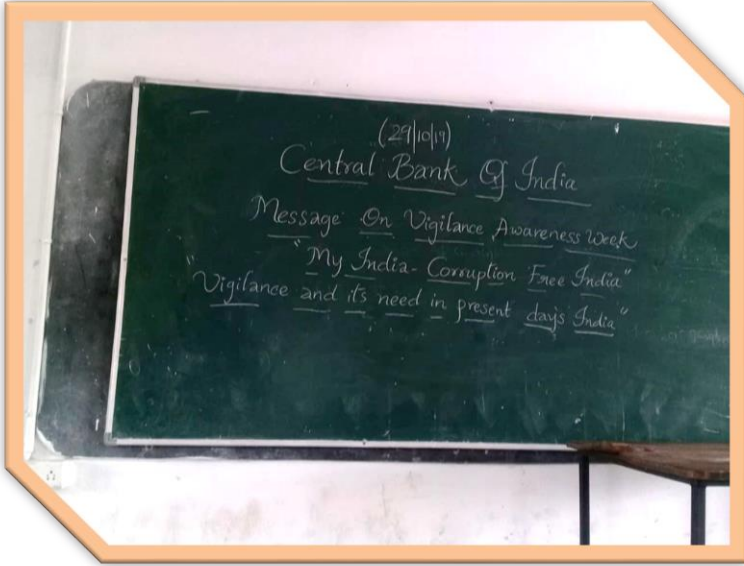 (29/10/19)
Central Bank Of India
Message On Vigilance Awareness Week
"My India - Corruption Free India"
"Vigilance and its need in present days India"